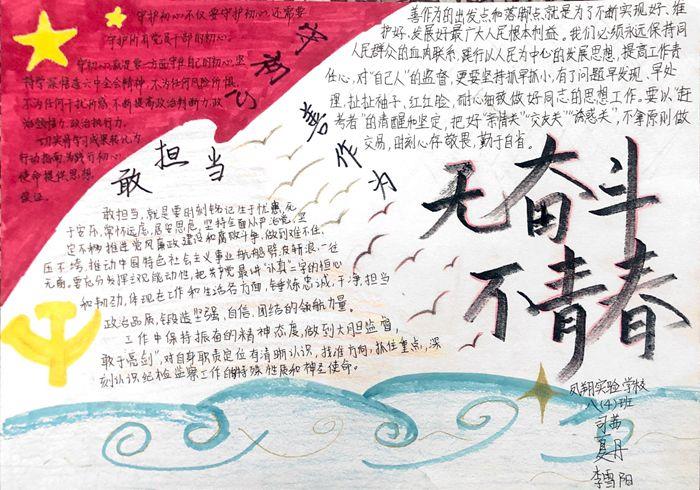 守护初心不仅要守护初心,还需要
守护所有党员干部的初心。
守初心就是要一方面守住自己的初心,坚
持学深悟透六中全会精神,不为任何风险所惧,
不为任何干扰所惑,不断提高政治判断力,政
治领悟力,政治执行力。
切实将学习成果转化为
行动指南,为践行初心
使命提供思想
保证。
守初心
善作为
敢担当
善作为的出发点和落脚点,就是为了不断实现好、维
护好、发展好最广大人民根本利益。我们必须永远保持同
人民群众的血肉联系,践行以人民为中心的发展思想,提高工作责
任心,对“自己人”的监督,更要坚持抓早抓小,有了问题早发现、早处
理,扯扯袖子,红红脸,耐心细致做好同志的思想工作。要以“赶
考者”的清醒和坚定,把好“亲情关”“交友关”“诱惑关”,不拿原则做
交易,时刻心怀敬畏,勤于自省。
敢担当,就是要时刻铭记生于忧患,死
于安乐,常怀远虑,居安思危,坚持全面从严治党,坚
定不移推进党风廉政建设和腐败斗争,做到难不住、
压不垮,推动中国特色社会主义事业航船劈波斩浪、一往
无前。要充分发挥主观能动性,把共产党最讲“认真”二字的恒心
和韧劲,体现在工作和生活各方面,锤炼忠诚,干净,担当
政治品质,锻造坚强,自信,团结的领航力量。
工作中保持振奋的精神态度,做到大胆监督,
敢于亮剑”,对自身职责定位有清晰认识,找准方向,抓住重点,深
刻认识纪检监察工作的特殊性质和神圣使命。
无奋斗
不青春
凤翔实验学校
八(4)班
司茜
夏丹
李雪阳